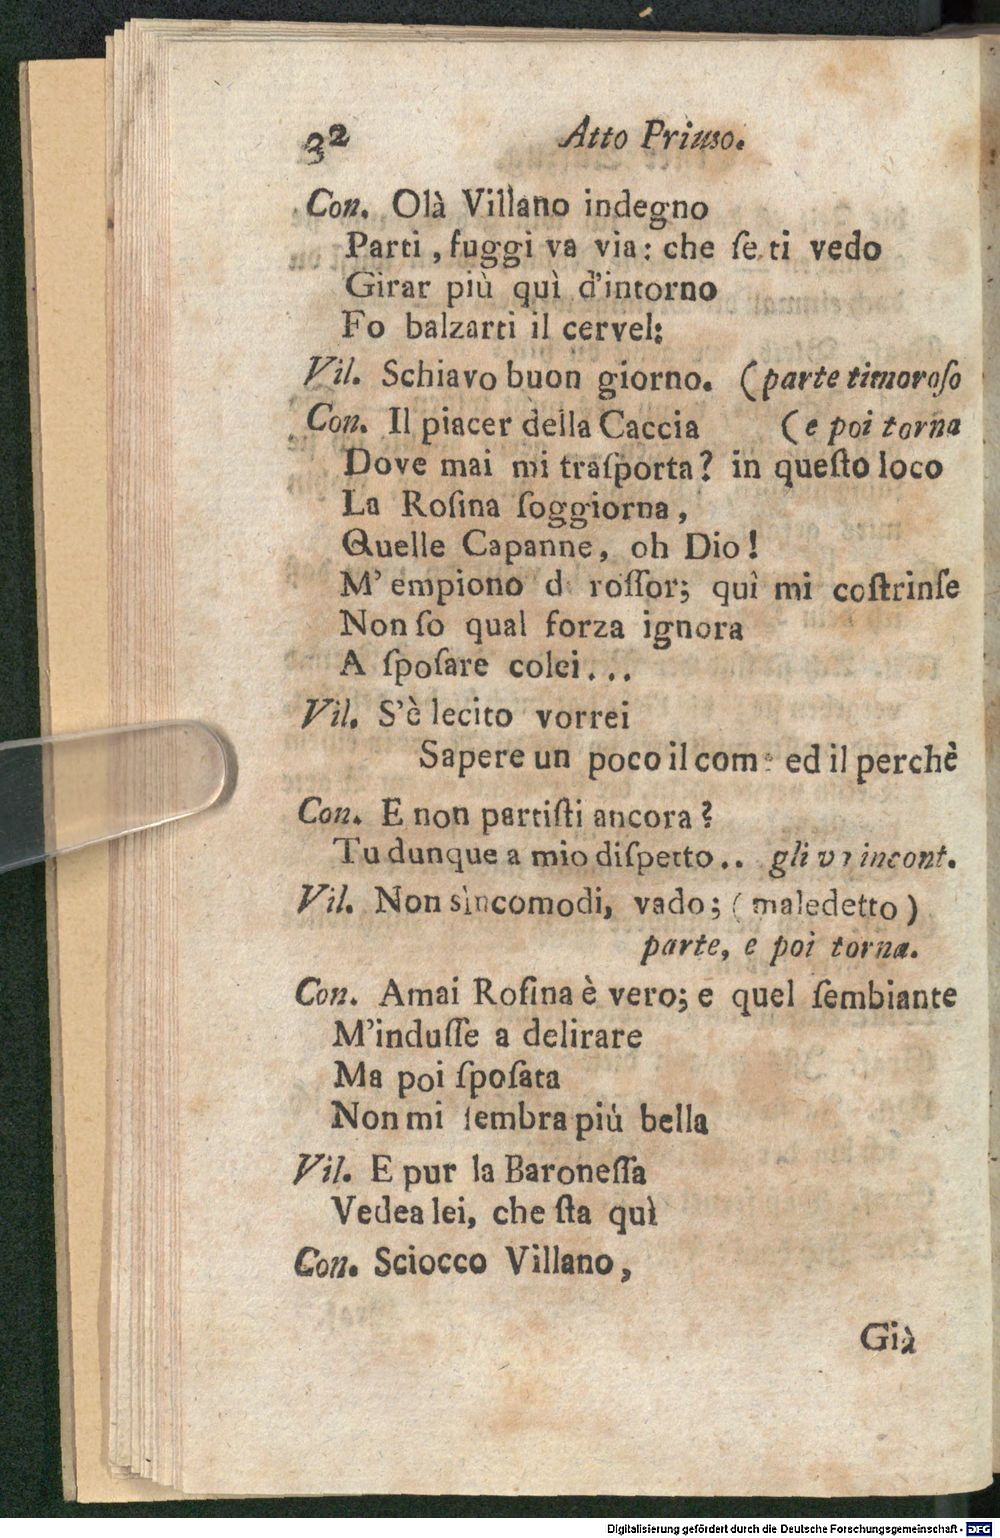 32 Atto Primo.
Con. Olà Villano indegno
Parti, fuggi va via: che ſe ti vedo
Girar più quì d'intorno
Fo balzarti il cervel:
Vil. Schiavo buon giorno. (parte timoroſo
Con. Il piacer della Caccia (e poi torna
Dove mai mi traſporta? in queſto loco
La Roſina ſoggiorna,
Quelle Capanne, oh Dio!
M'empiono d roſſor; quì mi coſtrinſe
Non ſo qual forza ignora
A ſpoſare colei...
Vil. S'è lecito vorrei
Sapere un poco il com: ed il perchè
Con. E non partiſti ancora?
Tu dunque a mio diſpetto.. gli incont.
Vil. Non sìncomodi, vado; (maledetto)
parte, e poi torna.
Con. Amai Roſina è vero; e quel ſembiante
M'induſſe a delirare
Ma poi ſpoſata
Non mi ſembra più bella
Vil. E pur la Baroneſſa
Vedea lei, che ſta quì
Con. Sciocco Villano,
Già
Digitalisierung gefördert durch die Deutsche Forschungsgemeinschaft - DFG